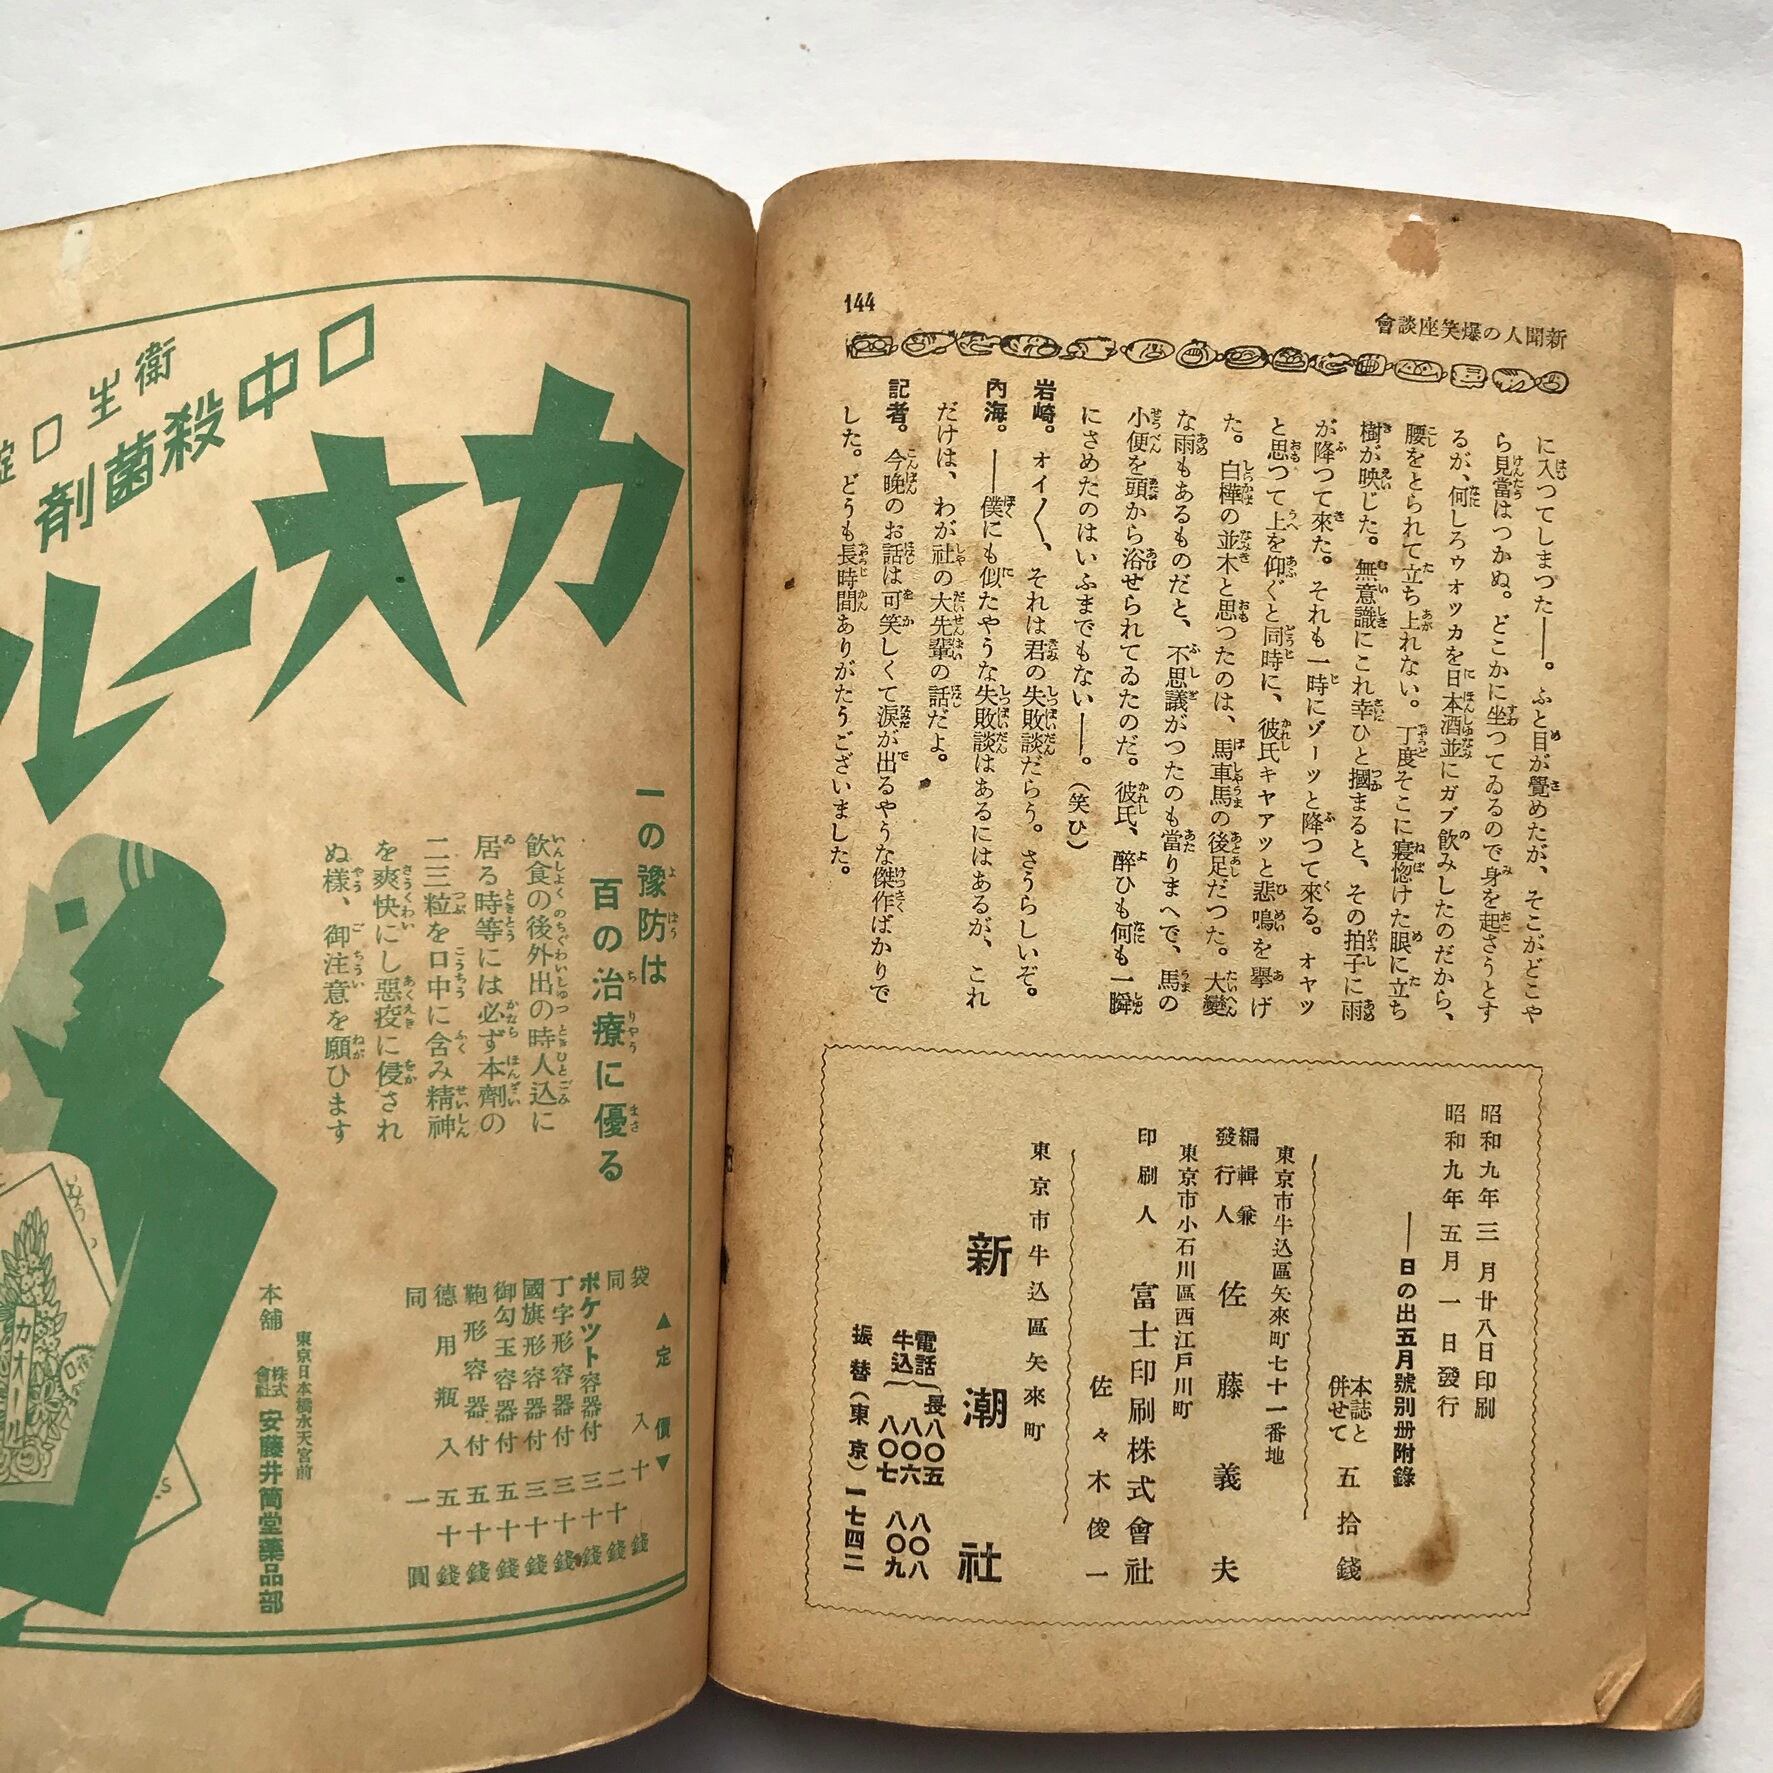 新聞人の爆笑座談會
144
に入つてしまつた――。ふと目が覺めたが、そこがどこや
ら見當はつかぬ。どこかに坐つてゐるので身を起さうとす
るが、何しろウオツカを日本酒並にガブ飲みしたのだから、
腰をとられて立ち上れない。丁度そこに寢惚けた眼に立ち
樹が映じた。無意識にこれ幸ひと摑まると、その拍子に雨
が降つて來た。それも一時にゾーッと降つて來る。オヤッ
と思つて上を仰ぐと同時に、彼氏キヤアッと悲鳴を擧げ
た。白樺の並木と思つたのは、馬車馬の後足だつた。大變
な雨もあるものだと、不思議がつたのも當りまへで、馬の
小便を頭から浴せられてゐたのだ。彼氏、醉ひも何も一瞬
にさめたのはいふまでもない――。（笑ひ）
岩崎。オイ〱、それは君の失敗談だらう。さうらしいぞ。
內海。――僕にも似たやうな失敗談はあるにはあるが、これ
だけは、わが社の大先輩の話だよ。
記者。今晩のお話は可笑しくて淚が出るやうな傑作ばかりで
した。どうも長時間ありがたうございました。
昭和九年三月廿八日印刷
昭和九年五月一日發行
――日の出五月號別册附錄
本誌と併せて 五拾錢
東京市牛込區矢來町七十一番地
編輯兼發行人 佐藤義夫
東京市小石川區西江戸川町
印刷人 富士印刷株式會社
佐々木俊一
東京市牛込區矢來町
新潮社
電話牛込 長八〇五 八〇六 八〇七 八〇八 八〇九
振替（東京）一七四二
衛生口錠
口中殺菌剤
カオール
一の豫防は
百の治療に優る
飲食の後外出の時人込に
居る時等には必ず本劑の
二三粒を口中に含み精神
を爽快にし惡疫に侵され
ぬ樣、御注意を願ひます
▲定價▼
袋入 十錢
同 二十錢
ポケット容器付 三十錢
丁字形容器付 三十錢
國旗形容器付 三十錢
御勾玉容器付 五十錢
鞄形容器付 五十錢
德用瓶入 五十錢
同 一圓
東京日本橋水天宮前
本舖 株式會社 安藤井筒堂藥品部
カオール